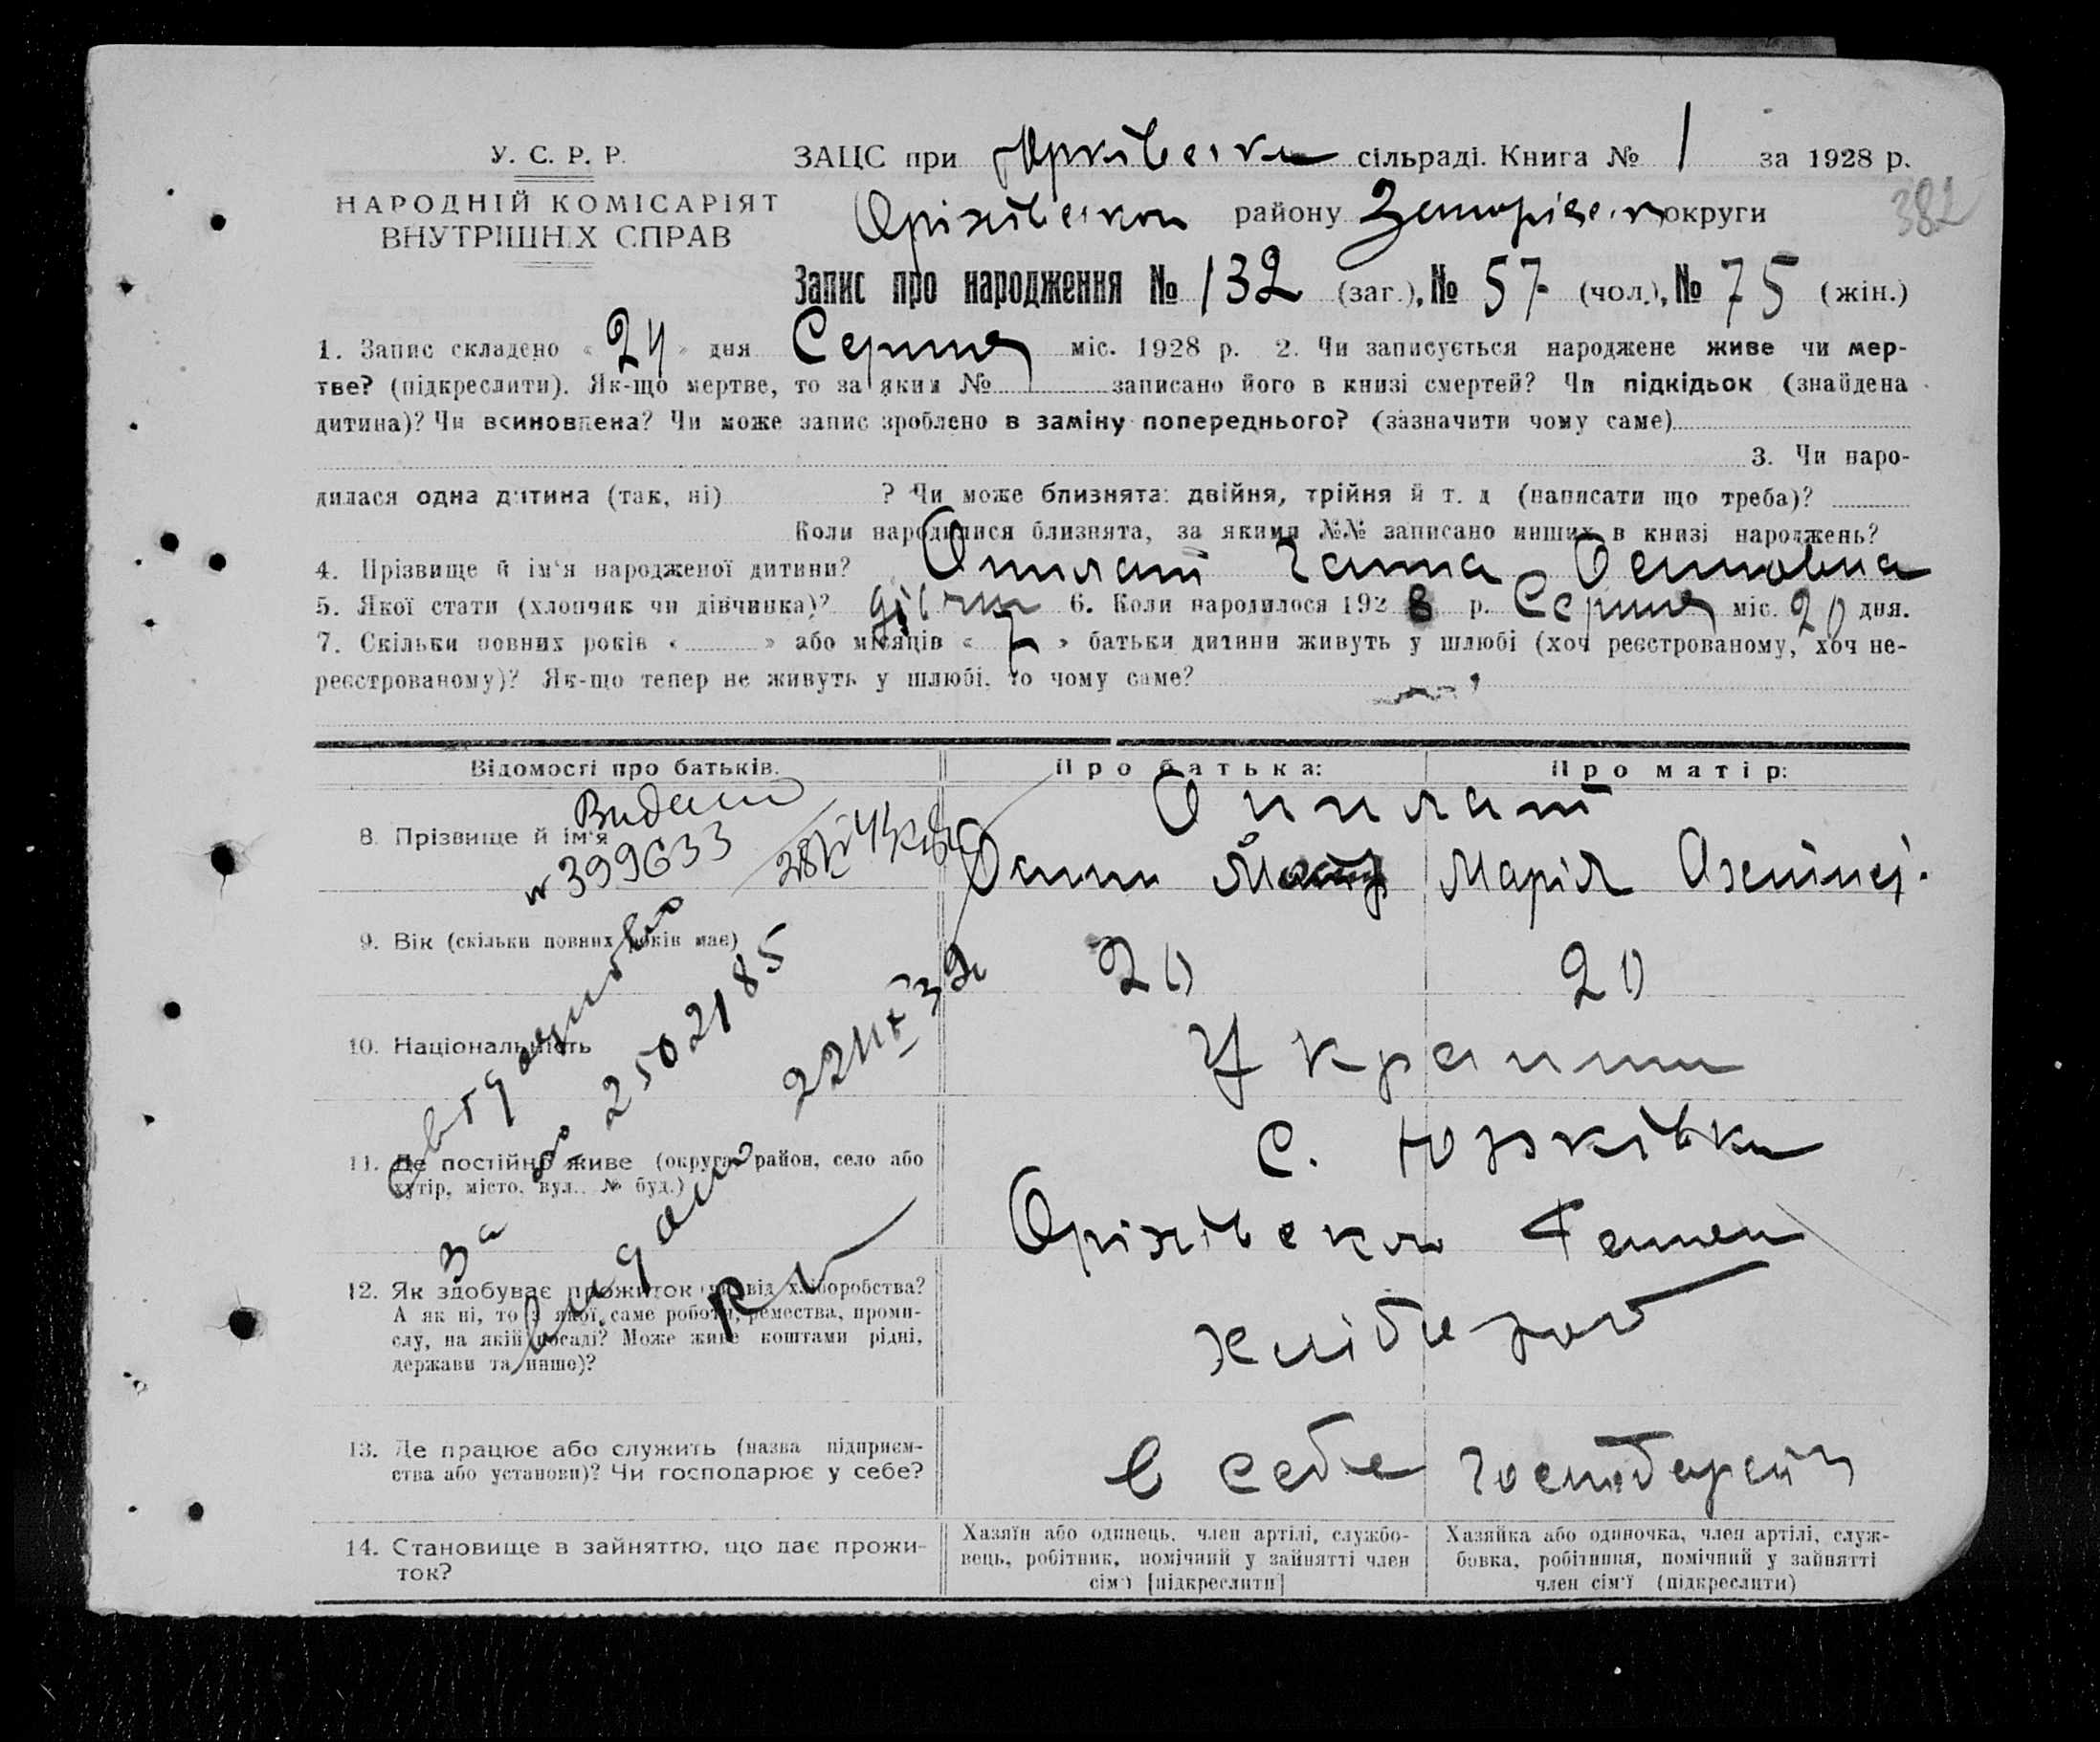 У. С. Р. Р.
НАРОДНІЙ КОМІСАРІЯТ
ВНУТРІШНІХ СПРАВ
ЗАЦС при Юрківській сільраді. Книга № 1 за 1928 р.
382
Оріхівської району округи
Запис про народження № 132 (заг.), № 57 (чол.), № 75 (жін.)
1. Запис складено « 24 » дня Серпня міс. 1928 р. 2. Чи записується народжене живе чи мер-
тве? (підкреслити). Як-що мертве, то за яким № записано його в книзі смертей? Чи підкідьок (знайдена
дитина)? Чи всиновлена? Чи може запис зроблено в заміну попереднього? (зазначити чому саме)
3. Чи наро-
дилася одна дитина (так, ні) ? Чи може близнята: двійня, трійня й т. д (написати що треба)?
Коли народилися близнята, за якими №№ записано инших в книзі народжень?
4. Прізвище й ім'я народженої дитини? Ганна
5. Якої стати (хлопчик чи дівчинка)? 6. Коли народилося 1928 р. Серпня міс. 20 дня.
7. Скільки повних років « » або місяців « 7 » батьки дитини живуть у шлюбі (хоч реєстрованому, хоч не-
реєстрованому)? Як-що тепер не живуть у шлюбі, то чому саме?
Відомості про батьків. Про батька: Про матір:
Видано
8. Прізвище й ім'я
№ 399633
Марія
9. Вік (скільки повних років має) 20 20
10. Національність Українці
№ 2502185
11. Де постійно живе (округа, район, село або
хутір, місто, вул., № буд.)
с. Юрківка
Оріхівської
12. Як здобуває прожиток (чи від хліборобства?
А як ні, то з якої саме роботи, ремества, проми-
слу, на якій посаді? Може живе коштами рідні,
держави та инше)?
хлібороб
13. Де працює або служить (назва підприєм-
ства або установи)? Чи господарює у себе?
в себе
14. Становище в зайняттю, що дає прожи-
ток?
Хазяїн або одинець, член артілі, службо-
вець, робітник, помічний у зайнятті член
сім'ї [підкреслити]
Хазяйка або одиночка, член артілі, служ-
бовка, робітниця, помічний у зайнятті
член сім'ї (підкреслити)